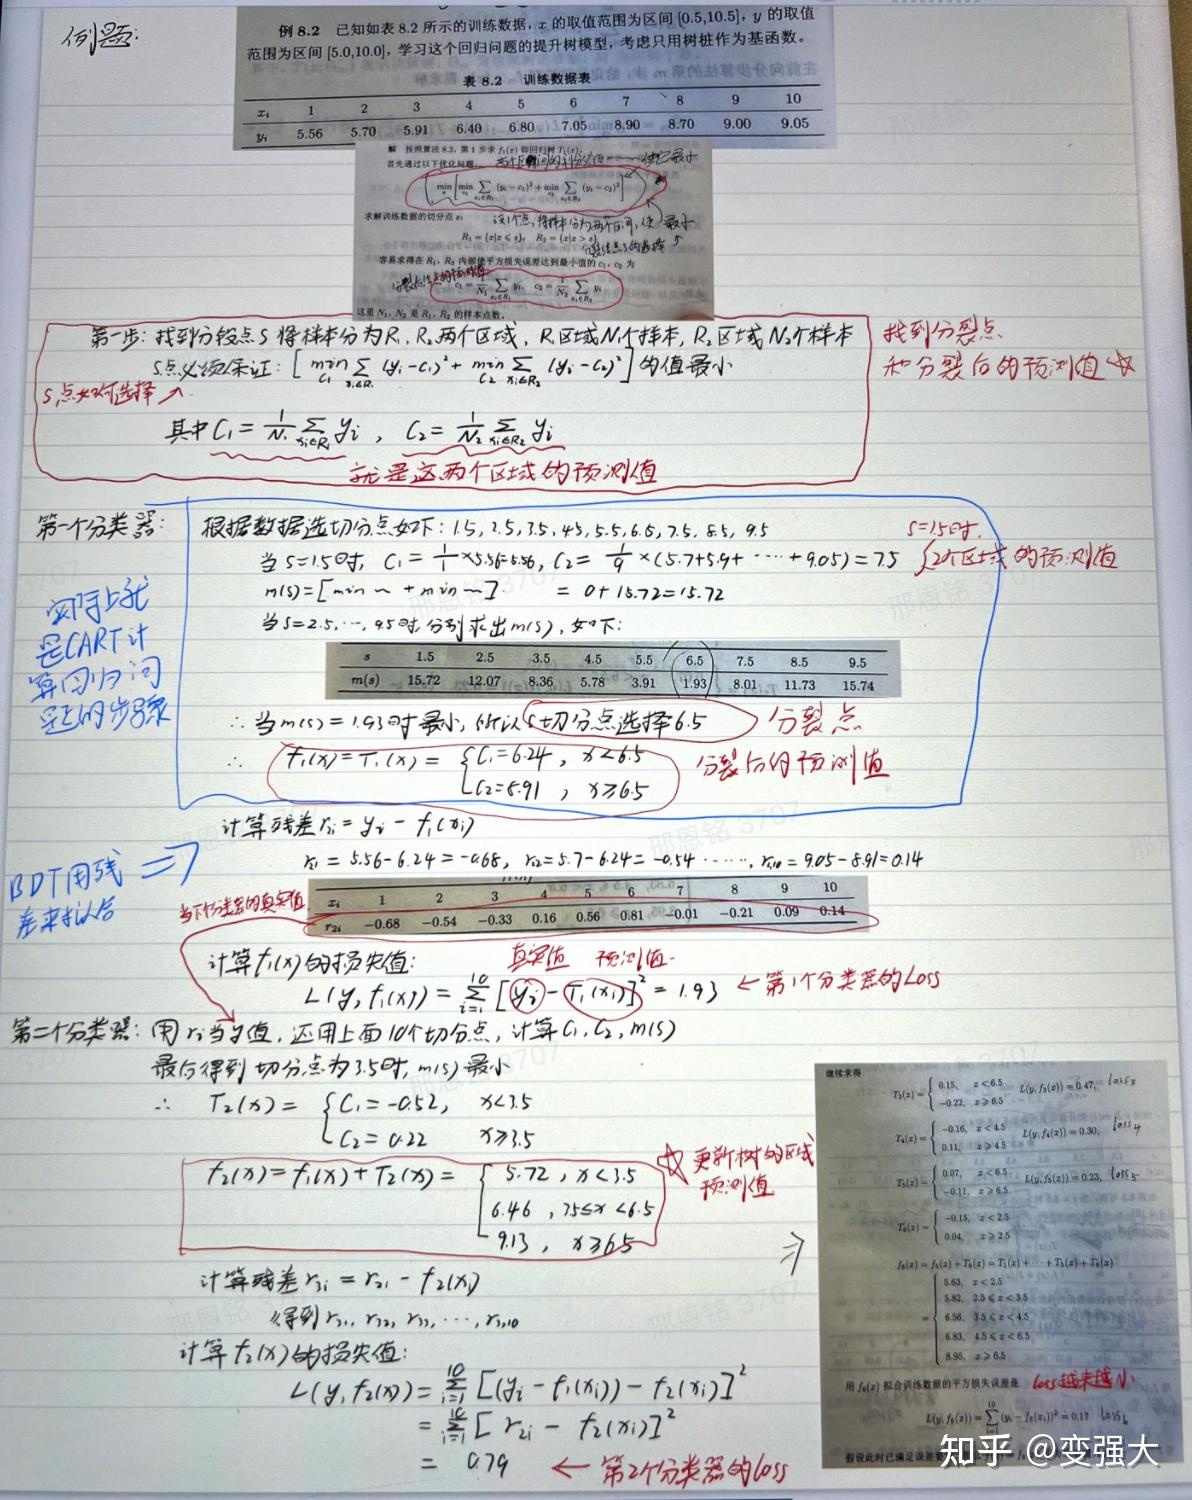 例题:
例 8.2 已知如表 8.2 所示的训练数据, x 的取值范围为区间 [0.5,10.5], y 的取值
范围为区间 [5.0,10.0], 学习这个回归问题的提升树模型, 考虑只用树桩作为基函数。
表 8.2 训练数据表
xi 1 2 3 4 5 6 7 8 9 10
yi 5.56 5.70 5.91 6.40 6.80 7.05 8.90 8.70 9.00 9.05
解 按照算法 8.3, 第 1 步求 f1(x) 即回归树 T1(x)。
首先通过以下优化问题:
min s [min c1 ∑ xi∈R1 (yi−c1)² + min c2 ∑ xi∈R2 (yi−c2)²]
求解训练数据的切分点 s:
R1 = {x|x ⩽ s}, R2 = {x|x > s}
容易求得在 R1, R2 内部使平方损失误差达到最小值的 c1, c2 为
c1 = 1/N1 ∑ xi∈R1 yi, c2 = 1/N2 ∑ xi∈R2 yi
这里 N1, N2 是 R1, R2 的样本点数。
第一步: 找到分裂点 S 将样本分为 R1, R2 两个区域, R1区域N1个样本, R2区域N2个样本
找到分裂点
S点必须保证: [min C1 ∑ xi∈R1 (yi−C1)² + min C2 ∑ xi∈R2 (yi−C2)²] 的值最小
和分裂后的预测值
S点如何选择
其中 C1 = 1/N1 ∑ xi∈R1 yi , C2 = 1/N2 ∑ xi∈R2 yi
就是这两个区域的预测值
第一个分类器:
根据数据选切分点如下: 1.5, 2.5, 3.5, 4.5, 5.5, 6.5, 7.5, 8.5, 9.5
S=1.5时,
当 S=1.5时, C1 = 1/1 ×5.56=5.56, C2 = 1/9 ×(5.7+5.9+ ⋯ +9.05) = 7.5
2个区域的预测值
m(s)=[min ~ + min ~] = 0+15.72=15.72
当S=2.5, ⋯, 9.5时 分别求出m(s), 如下:
s 1.5 2.5 3.5 4.5 5.5 6.5 7.5 8.5 9.5
m(s) 15.72 12.07 8.36 5.78 3.91 1.93 8.01 11.73 15.74
实际上就
是CART计
算回归问
题的步骤
∴ 当m(s)=1.93时最小, 所以 S切分点选择6.5
分裂点
∴ f1(x)=T1(x)= { C1=6.24 , x<6.5
C2=8.91 , x≥6.5
分裂后的预测值
计算残差 r2i = yi − f1(xi)
r21 = 5.56−6.24 = −0.68, r22=5.7−6.24= −0.54 ⋯⋯, r2,10 = 9.05−8.91=0.14
BDT用残
差来拟合
当下个分类器的真实值
xi 1 2 3 4 5 6 7 8 9 10
r2i −0.68 −0.54 −0.33 0.16 0.56 0.81 −0.01 −0.21 0.09 0.14
计算f1(x)的损失值:
真实值 预测值
L(y, f1(x)) = ∑ i=1 10 [yi − T1(xi)]² = 1.93
← 第1个分类器的Loss
第二个分类器: 用 r2当y值, 还用上面10个切分点, 计算C1, C2, m(s)
最后得到切分点为3.5时, m(s)最小
∴ T2(x) = { C1= −0.52, x<3.5
C2= 0.22 x≥3.5
f2(x)= f1(x)+T2(x) = { 5.72 , x<3.5
6.46 , 3.5≤x<6.5
9.13 , x≥6.5
更新树的区域
预测值
计算残差 r3i = r2i − f2(xi)
得到 r31, r32, r33, ⋯, r3,10
计算f2(x)的损失值:
L(y, f2(x)) = ∑ i=1 10 [(yi − f1(xi)) − f2(xi)]²
= ∑ i=1 10 [r2i − f2(xi)]²
= 0.79
← 第2个分类器的Loss
继续求得
T3(x) = { 0.15, x < 6.5
−0.22, x ⩾ 6.5
L(y, f3(x)) = 0.47, loss3
T4(x) = { −0.16, x < 4.5
0.11, x ⩾ 4.5
L(y, f4(x)) = 0.30, loss4
T5(x) = { 0.07, x < 6.5
−0.11, x ⩾ 6.5
L(y, f5(x)) = 0.23, loss5
T6(x) = { −0.15, x < 2.5
0.04, x ⩾ 2.5
f6(x) = f5(x) + T6(x) = T1(x) + ⋯ + T5(x) + T6(x)
= { 5.63, x < 2.5
5.82, 2.5 ⩽ x < 3.5
6.56, 3.5 ⩽ x < 4.5
6.83, 4.5 ⩽ x < 6.5
8.95, x ⩾ 6.5
用 f6(x) 拟合训练数据的平方损失误差是
loss越来越小
L(y, f6(x)) = ∑ i=1 10 (yi − f6(xi))² = 0.17 loss6
假设此时已满足误差要
知乎 @变强大